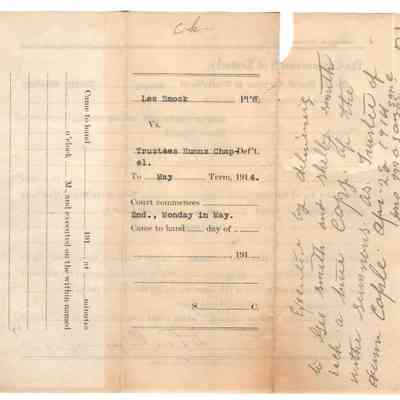 Came to hand 191 , at minutes
o'clock M., and executed on the within named
Lee Smock Pl'ff,
Vs.
Trustees Hunns Chap- Def't.
el.
To May Term, 1914.
Court commences
2nd., Monday in May.
Came to hand day of
191
S. C.
Executed by delivering
to Gee Smith and Shelby Smith
each a true Copy of the
within summons as Trustee of
Hunn Caple Apr 28 1914